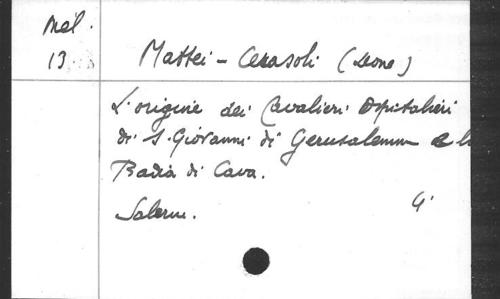 Mel.
13
Mattei - Cerasoli (Leone)
L'origine dei Cavalieri Ospitalieri
di S. Giovanni di Gerusalemme e la
Badia di Cava.
Salerno. 4°